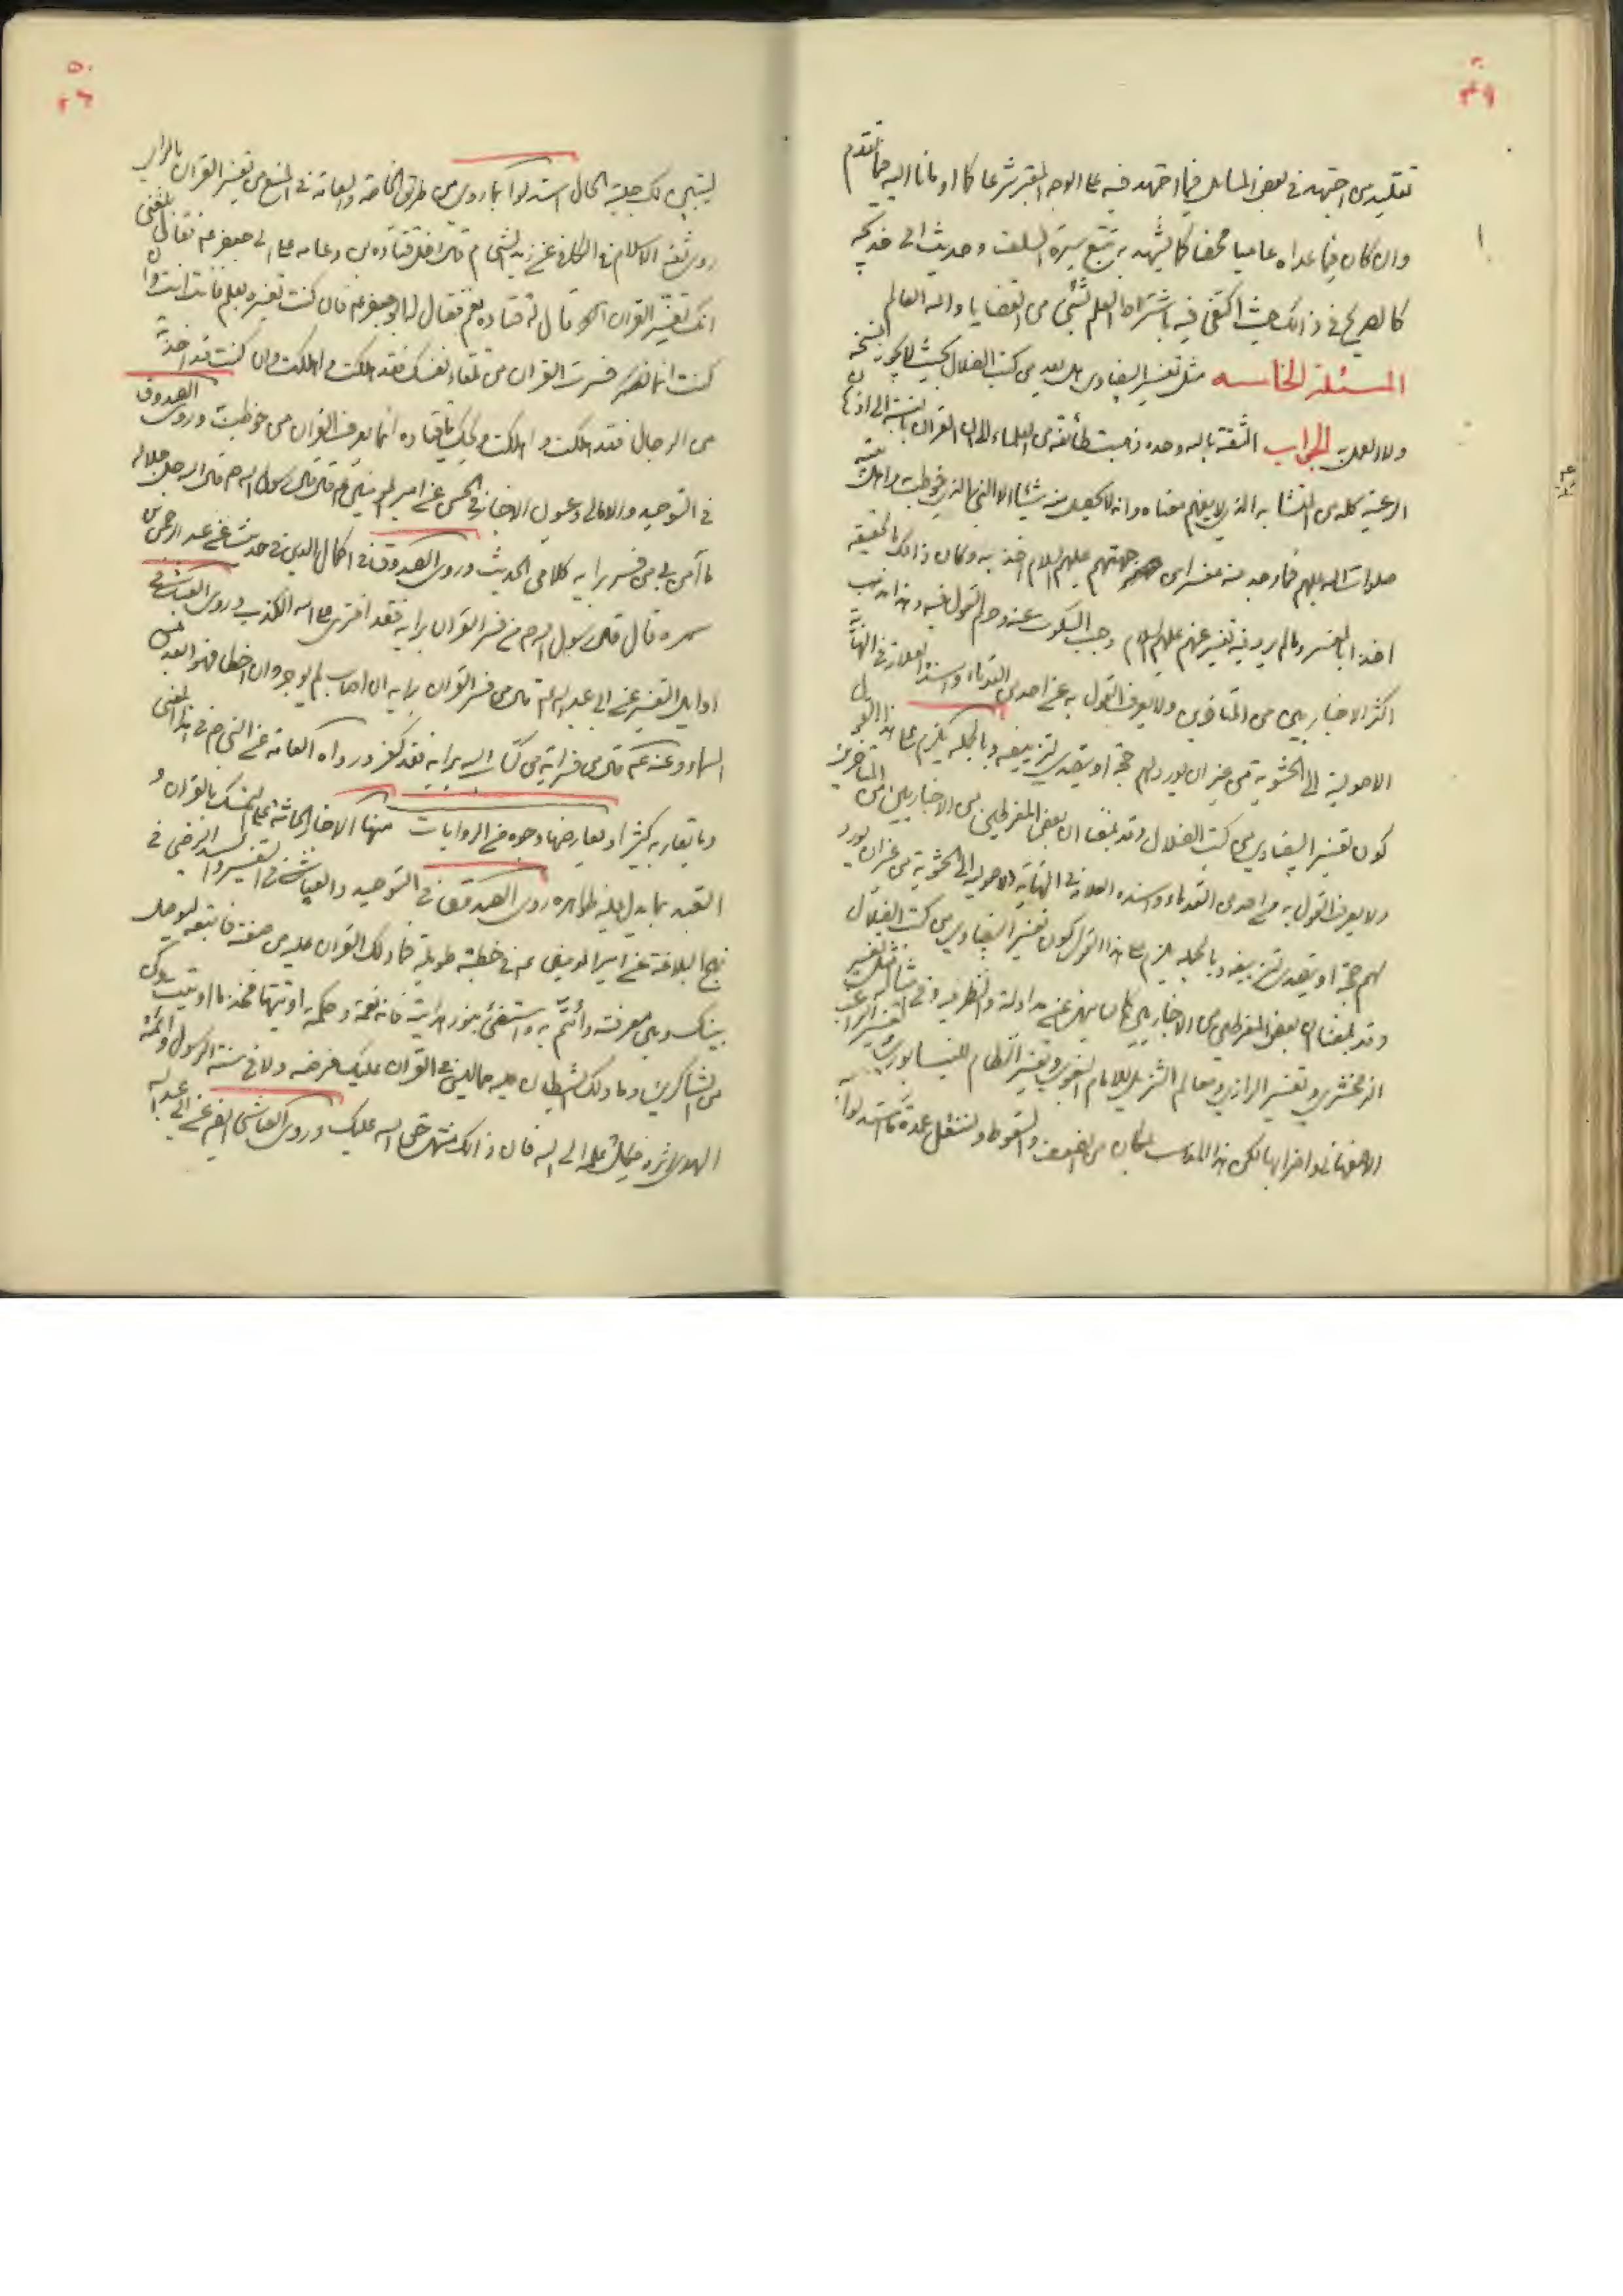 ٤٩
تقليد من اجتهد في بعض المسائل فيما اجتهد فيه على الوجه المعتبر شرعا كما اومأنا اليه فيما تقدم
وان كان فيما عداه عاميا محضا كما يشهد به تتبع سيرة السلف وحديث ابي خديجه
كالصريح في ذالك حيث اكتفى فيه باشتراط العلم بشئ من القضايا والله العالم
المسئلة الخامسه مثل تفسير البيضاوي هل يعد من كتب الضلال بحيث لا يجوز نسخه
ولا والعمل به الجواب الثقة بالله وحده ذهبت طائفة من العلماء الى ان القران بالنسبة الى اذهان
الرعية كله من المتشابه الذي لا يفهم معناه وانه لا يحصل منه شيئا الا النبي الذي خوطب به واهل بيته
صلوات الله عليهم فما وجد منه مفسرا من جهتهم عليهم السلام اخذ به وكان ذالك بالحقيقة
اخذا بالمفسر وما لم يرد فيه تفسير عنهم عليهم السلام وجب السكوت عنه وحرم القول فيه وهذا مذهب
اكثر الاخباريين من المتاخرين ولا يعرف القول به عن احد من القدماء واسنده العلامة في النهاية
الاصولية الى الحشوية من غير ان يورد لهم حجة او يتصدى لتزييفه وبالجمله يلزم على هذا القول
كون تفسير البيضاوي من كتب الضلال وقد بلغنا ان بعض المفرطين من الاخباريين من المتاخرين
ولا يعرف القول به من احد من القدماء واسنده العلامة في النهاية الاصولية الى الحشوية من غير ان يورد
لهم حجة او يتصدى لتزييفه وبالجمله يلزم على هذا القول كون تفسير البيضاوي من كتب الضلال
وقد بلغنا ان بعض المفرطين من الاخباريين كان ينهى عن مداولته والنظر فيه وفي مثاله مثل تفسير
الزمخشري وتفسير الرازي ومعالم التنزيل للامام البغوي وتفسير النظام للنيسابوري وتفسير الراغب
الاصفهاني واضرابها لكن هذا المذهب بمكان من الضعف والسقوط ولننقل عمدة ما استدلوا به
٥٠
ليتبين لك جلية الحال استدلوا بما روي من طرق الخاصة والعامة في المنع من تفسير القران بالراي
روى ثقة الاسلام في الكافي عن زيد الشحام قال دخل قتادة بن دعامه على ابي جعفر ع فقال بلغني
انك تفسر القران قال له قتاده نعم فقال له ابو جعفر ع فان كنت تفسره بعلم فانت انت وان
كنت انما فسرت القران من تلقاء نفسك فقد هلكت واهلكت وان كنت قد اخذته
من الرجال فقد هلكت واهلكت ويحك يا قتاده انما يعرف القران من خوطب به وروى الصدوق
في التوحيد والامالي وعيون الاخبار عن امير المؤمنين ع قال قال رسول الله ص قال الله جل جلاله
ما آمن بي من فسر برايه كلامي الحديث وروى الصدوق في اكمال الدين في حديث عن عبد الرحمن بن
سمره قال قال رسول الله ص من فسر القران برايه فقد افترى على الله الكذب وروى العياشي في
اوايل التفسير عن ابي عبد الله ع قال من فسر القران برايه ان اصاب لم يوجر وان اخطا فهو ابعد من
السماء وعنه ع قال من فسر اية من كتاب الله برايه فقد كفر ورواه العامة عن النبي ص في هذا المعنى
وما يقاربه كثير او يعارضها وجوه من الروايات منها الاخبار الحاثة على التمسك بالقران و
التعبد بما يدل عليه ظواهره روى الصدوق في التوحيد والعياشي في التفسير والسيد الرضي في
نهج البلاغة عن امير المومنين ع في خطبة طويلة فما دلك القران عليه من صفته فاتبعه ليوصل
بينك وبين معرفته وأتم به واستضئ بنور هدايته فانه نعمة وحكمة اوتيتها فخذ ما اوتيت وكن
من الشاكرين وما دلك الشيطان عليه مما ليس في القران عليك فرضه ولا في سنة الرسول وائمة
الهدى اثره فكل علمه الى الله فان ذالك منتهى حق الله عليك وروى العياشي ايضا عن ابي عبد الله